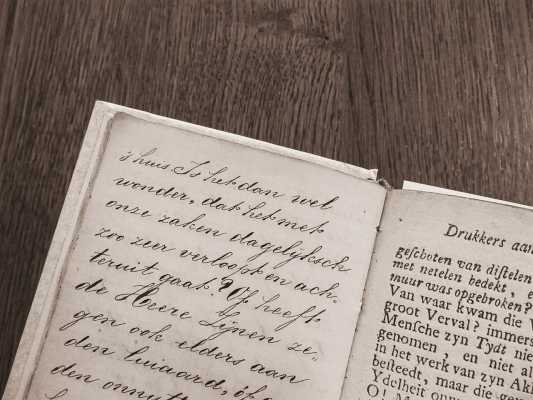 's huis. Is het dan wel
wonder, dat het met
onze zaken dagelijksch
zoo zeer verloopt en ach-
teruit gaat? Of heeft
de Heere Zijnen ze-
gen ook elders aan
den luiaard, óf a
den onnutt
Drukkers aan
geſchoten van diſtelen
met netelen bedekt, e
muur was opgebroken?
Van waar kwam die V
groot Verval? immers
Menſche zyn Tydt nie
genomen, en niet al
in het werk van zyn Ak
beſteedt, maar die gev
Ydelheit onnu
O! M